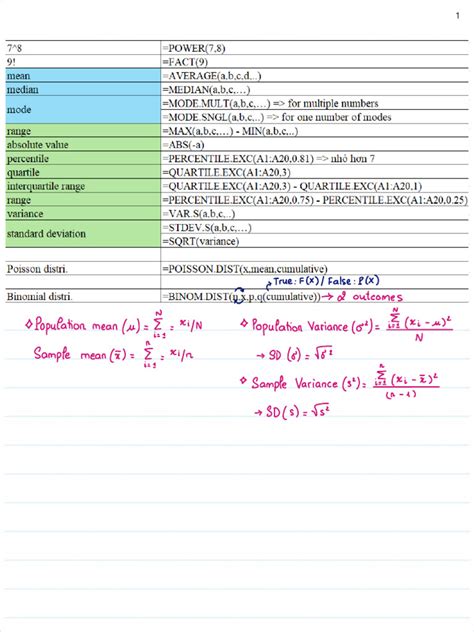 1
7^8 =POWER(7,8)
9! =FACT(9)
mean =AVERAGE(a,b,c,d,..)
median =MEDIAN(a,b,c,…)
mode =MODE.MULT(a,b,c,…) => for multiple numbers
=MODE.SNGL(a,b,c,..) => for one number of modes
range =MAX(a,b,c,…) - MIN(a,b,c,..)
absolute value =ABS(-a)
percentile =PERCENTILE.EXC(A1:A20,0.81) => nhỏ hơn 7
quartile =QUARTILE.EXC(A1:A20,3)
interquartile range =QUARTILE.EXC(A1:A20.3) - QUARTILE.EXC(A1:A20,1)
range =PERCENTILE.EXC(A1:A20,0.75) - PERCENTILE.EXC(A1:A20,0.25)
variance =VAR.S(a,b,c,..)
standard deviation =STDEV.S(a,b,c,…)
=SQRT(variance)
Poisson distri. =POISSON.DIST(x,mean,cumulative)
True: F(x) / False: P(x)
Binomial distri. =BINOM.DIST(n,x,p,q(cumulative)) → 2 outcomes
❖ Population mean (μ) = N Σ i=1 = xi/N
Sample mean (x̄) = n Σ i=1 = xi/n
❖ Population Variance (σ²) = N Σ i=1 (xi - μ)² / N
→ SD (σ) = √σ²
❖ Sample Variance (s²) = n Σ i=1 (xi - x̄)² / (n - 1)
→ SD (s) = √s²